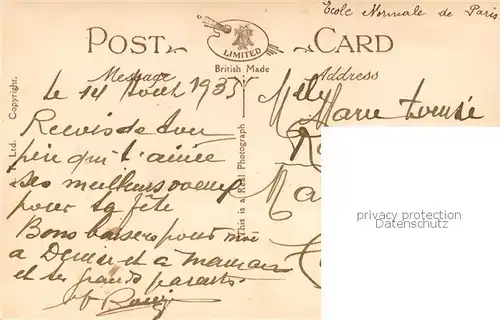 Ecole Normale de Paris
POST CARD
LIMITED
British Made
Message
Address
Ltd. Copyright.
This is a Real Photograph
le 14 Aout 1935
Recois de ton
père qui t'aime
ses meilleurs voeux
pour ta fête
Bons baisers pour moi
a Denise et à maman
et tes grands parents
Melle
Marie Louise
privacy protection
Datenschutz